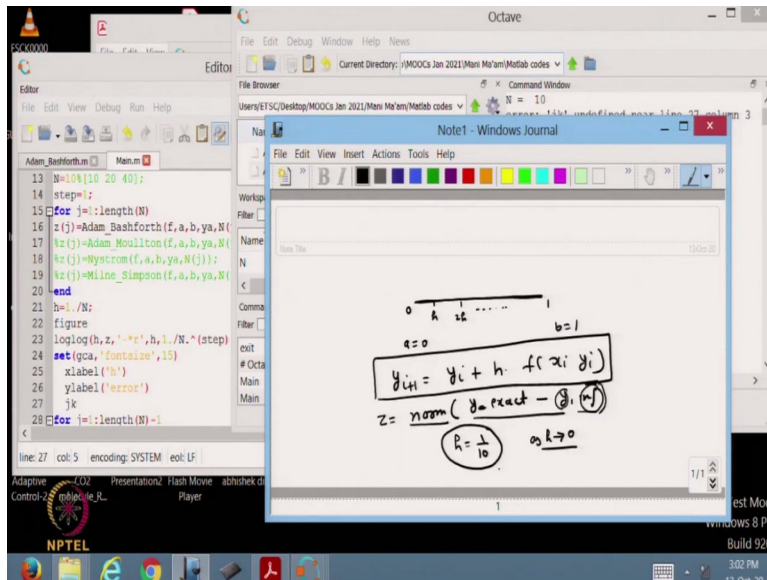 Octave
File Edit Debug Window Help News
Current Directory: ›\MOOCs Jan 2021\Mani Ma'am\Matlab codes
File Browser
Users/ETSC/Desktop/MOOCs Jan 2021/Mani Ma'am/Matlab codes
Command Window
N = 10
error: 'jk' undefined near line 27 column 3
FSCK0000
Editor
Editor
File Edit View Debug Run Help
Adam_Bashforth.m Main.m
13 N=10%[10 20 40];
14 step=1;
15 for j=1:length(N)
16 z(j)=Adam_Bashforth(f,a,b,ya,N(
17 %z(j)=Adam_Moullton(f,a,b,ya,N(
18 %z(j)=Nystrom(f,a,b,ya,N(j));
19 %z(j)=Milne_Simpson(f,a,b,ya,N(
20 end
21 h=1./N;
22 figure
23 loglog(h,z,'-*r',h,1./N.^(step)
24 set(gca,'fontsize',15)
25 xlabel('h')
26 ylabel('error')
27 jk
28 for j=1:length(N)-1
line: 27 col: 5 encoding: SYSTEM eol: LF
Works
Filter
Name
N
Comma
Filter
exit
# Octa
Main
Main
Note1 - Windows Journal
File Edit View Insert Actions Tools Help
B I
Note Title
13-Oct-20
0 h 2h ...... 1
a=0 b=1
y_{i+1} = y_i + h. f(x_i y_i)
z= norm( y_exact - y, inf)
h = 1/10 as h→0
1/1
1
Adaptive Control-2
CO2 molecule_R...
Presentation2
Flash Movie Player
abhishek di
NPTEL
est Mo
Windows 8 P
Build 920
3:02 PM